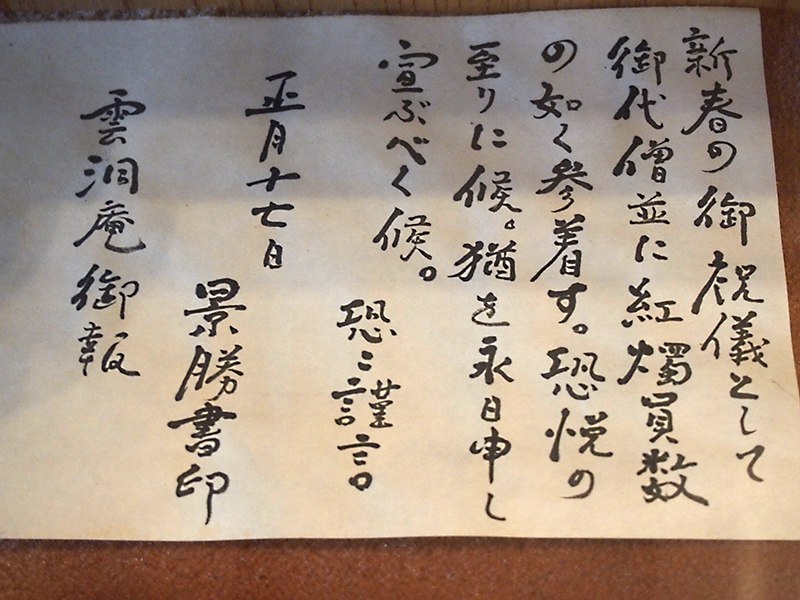 新春の御祝儀として
御代僧並に紅燭員数
の如く参着す。恐悦の
至りに候。猶を永日申し
宣ぶべく候。
恐々謹言
正月十七日
景勝書印
雲洞庵御報